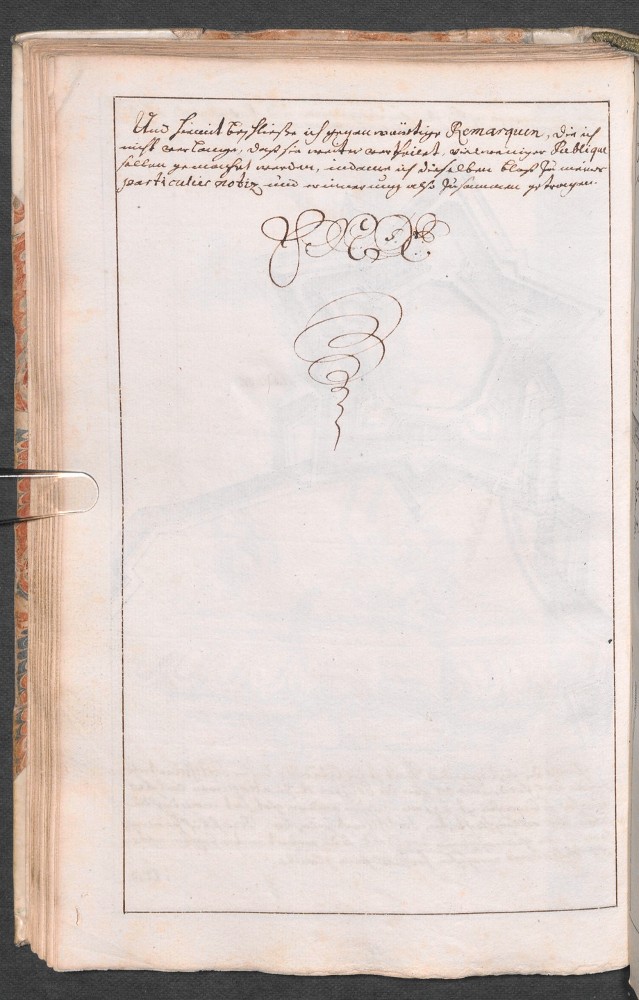 Und hiemit beschließe ich gegenwärtige Remarquen, die ich
nicht verlange, daß sie weiter vertheilet, viel weniger Publique
sollen gemacht werden, indeme ich dieselben bloß zu meiner
particulier notiz und erinnerung also zusammen getragen.